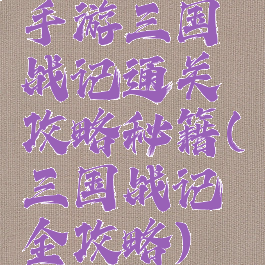 手游三国
战记通关
攻略秘籍(
三国战记
全攻略)